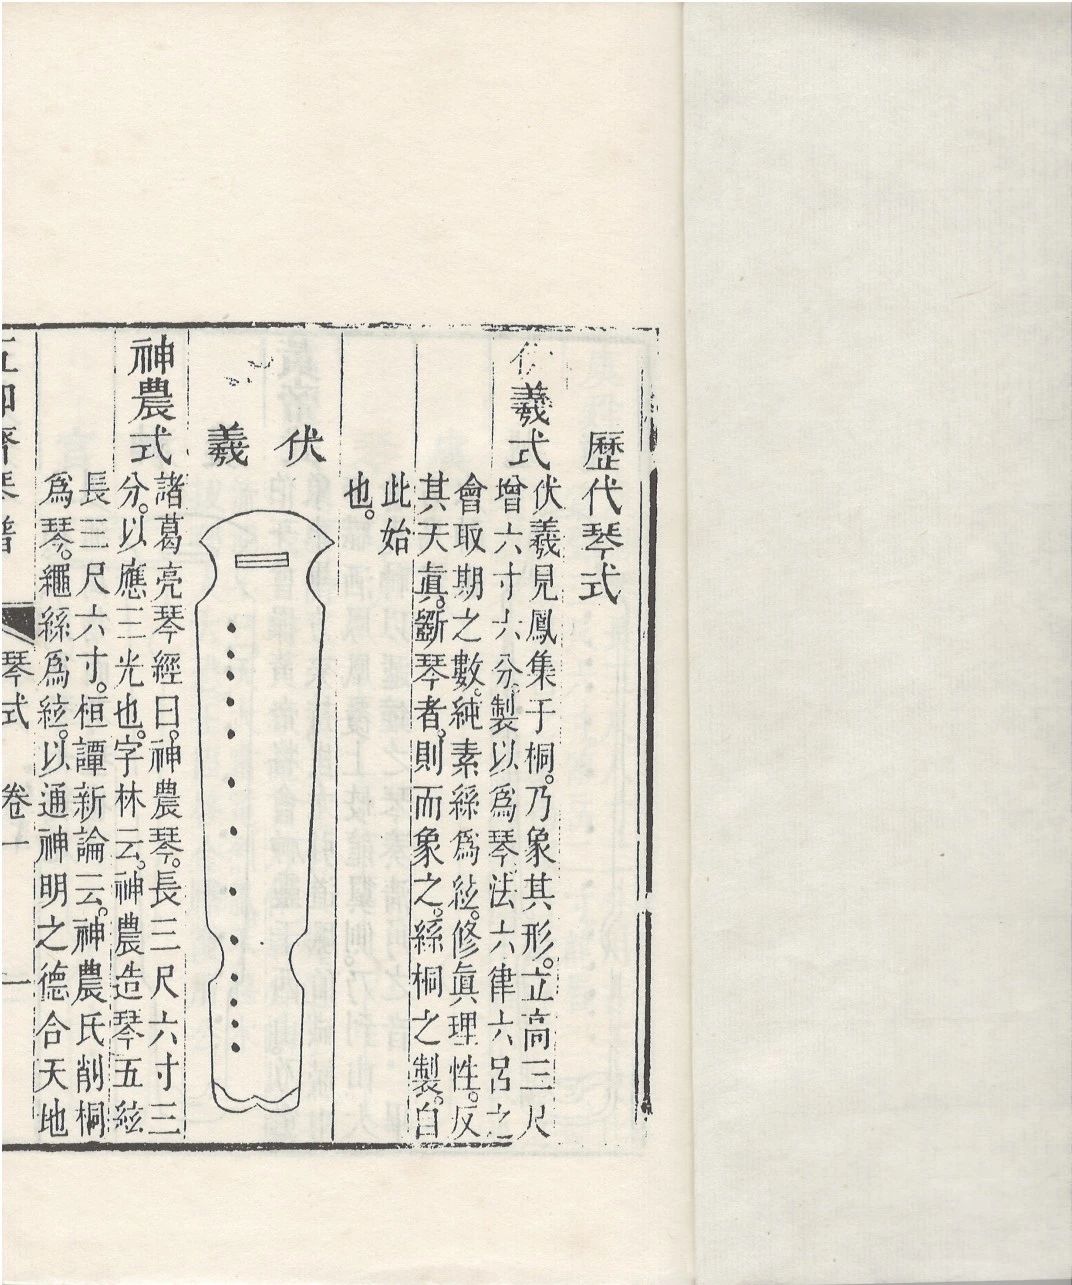 歷代琴式
伏羲式
伏羲見鳳集于桐。乃象其形。立高三尺
增六寸六分。製以爲琴。法六律六呂之
會取期之數。純素絲爲絃。修眞理性。反
其天眞。斵琴者。則而象之。絲桐之製。自
此始
也。
伏羲
神農式
諸葛亮琴經曰。神農琴。長三尺六寸三
分。以應三光也。字林云。神農造琴五絃
長三尺六寸。桓譚新論云。神農氏削桐
爲琴。繩絲爲絃。以通神明之德合天地
琴式 卷一 一